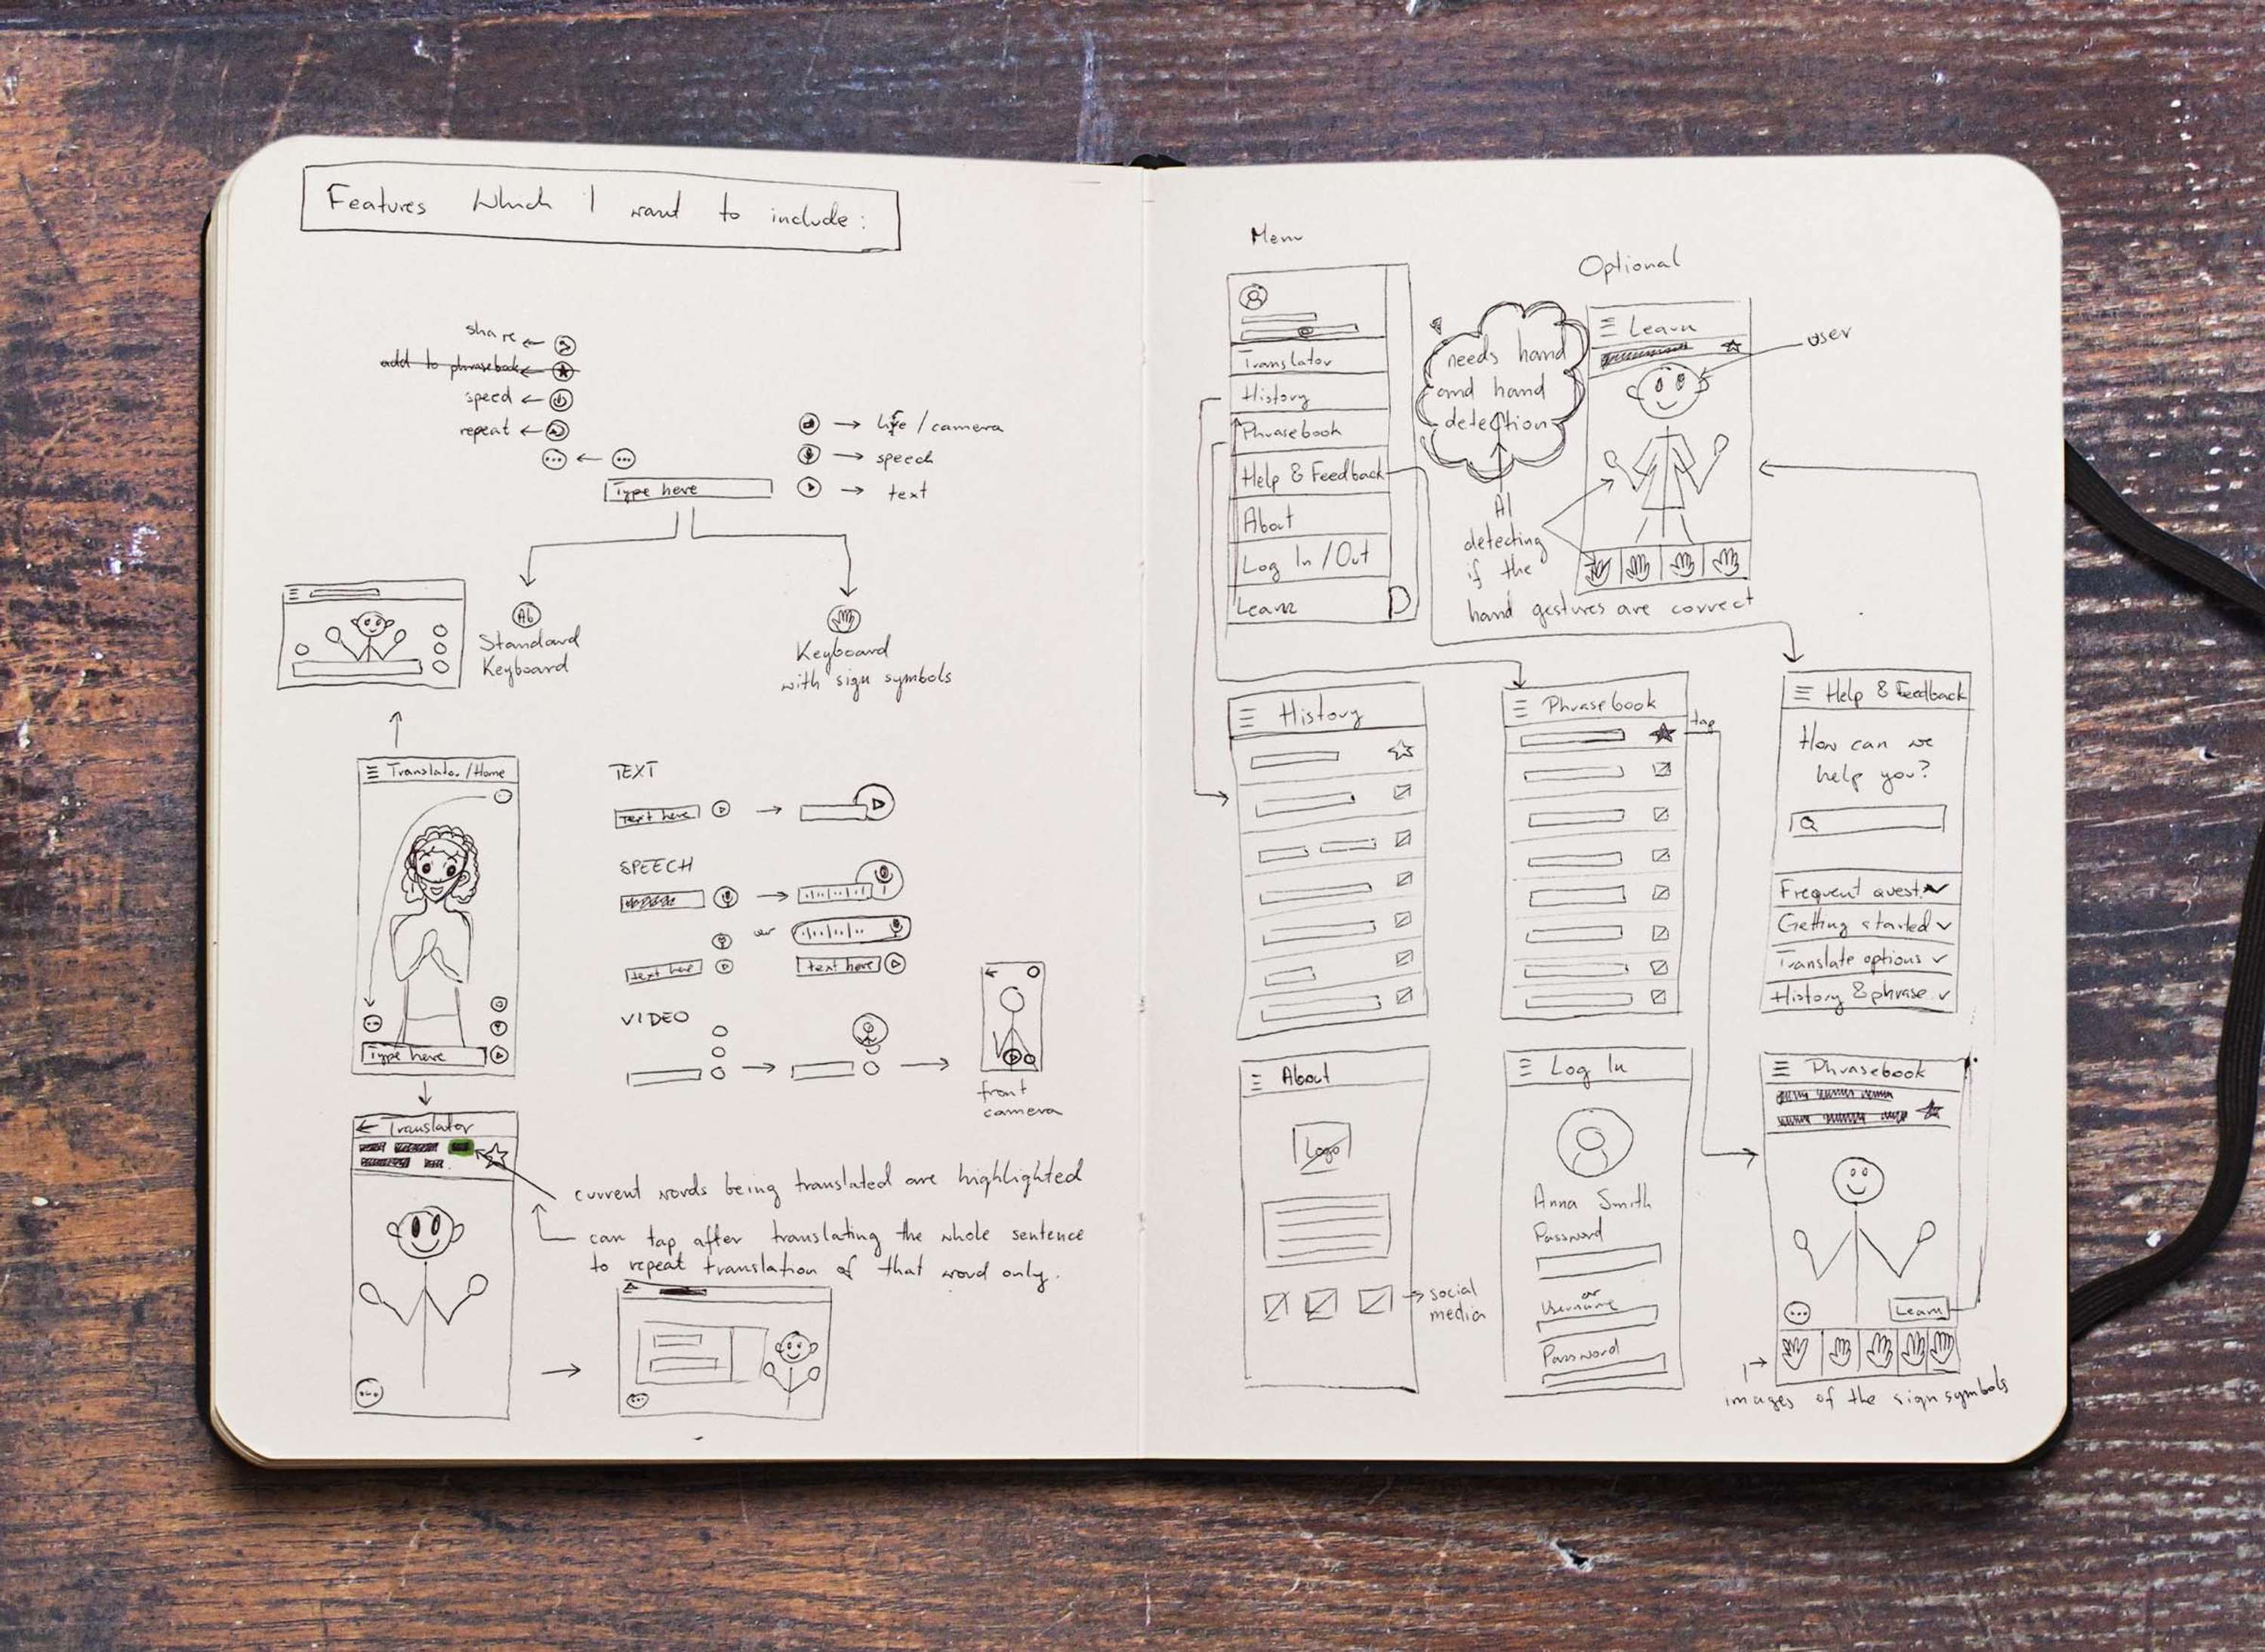 Features Which I want to include:
share
add to phrasebook
speed
repeat
Type here
life / camera
speech
text
Ab
Standard
Keyboard
Keyboard
with sign symbols
Translator/Home
Type here
TEXT
Text here
SPEECH
text here
text here
VIDEO
front
camera
Translator
current words being translated are highlighted
can tap after translating the whole sentence
to repeat translation of that word only.
Menu
Translator
History
Phrasebook
Help & Feedback
About
Log In / Out
Learn
needs hand
and hand
detection
AI
detecting
if the
hand gestures are correct
Optional
Learn
user
History
Phrasebook
tap
Help & Feedback
How can we
help you?
Frequent quest.
Getting started
Translate options
History & phrase.
About
Logo
social
media
Log In
Anna Smith
Password
or
Username
Password
Phrasebook
Learn
images of the sign symbols